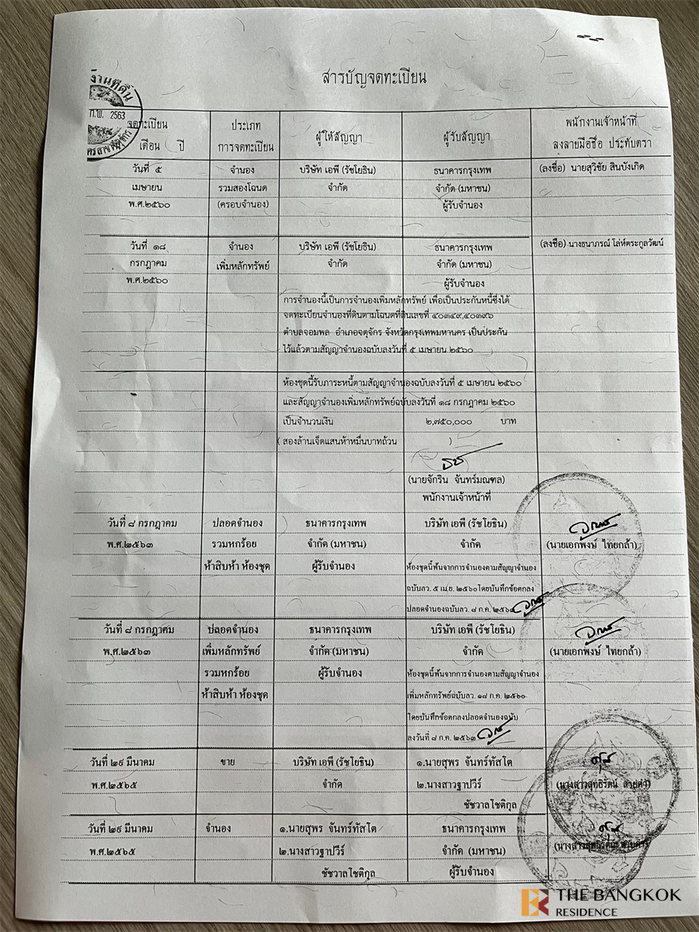 สารบัญจดทะเบียน
งานที่ดิน
ก.พ. 2563
จดทะเบียน
เดือน ปี
ประเภท
การจดทะเบียน
ผู้ให้สัญญา
ผู้รับสัญญา
พนักงานเจ้าหน้าที่
ลงลายมือชื่อ ประทับตรา
วันที่ ๕ จำนอง บริษัท เอพี (รัชโยธิน) ธนาคารกรุงเทพ (ลงชื่อ) นายสุวิชัย สินบังเกิด
เมษายน รวมสองโฉนด จำกัด จำกัด (มหาชน)
พ.ศ.๒๕๖๐ (ครอบจำนอง) ผู้รับจำนอง
วันที่ ๑๘ จำนอง บริษัท เอพี (รัชโยธิน) ธนาคารกรุงเทพ (ลงชื่อ) นางธนาภรณ์ โล่ห์ตระกูลวัฒน์
กรกฎาคม เพิ่มหลักทรัพย์ จำกัด จำกัด (มหาชน)
พ.ศ.๒๕๖๐ ผู้รับจำนอง
การจำนองนี้เป็นการจำนองเพิ่มหลักทรัพย์ เพื่อเป็นประกันหนี้ซึ่งได้
จดทะเบียนจำนองที่ดินตามโฉนดที่ดินเลขที่
ตำบลจอมพล อำเภอจตุจักร จังหวัดกรุงเทพมหานคร เป็นประกัน
ไว้แล้วตามสัญญาจำนองฉบับลงวันที่ ๕ เมษายน ๒๕๖๐
ห้องชุดนี้รับภาระหนี้ตามสัญญาจำนองฉบับลงวันที่ ๕ เมษายน ๒๕๖๐
และสัญญาจำนองเพิ่มหลักทรัพย์ฉบับลงวันที่ ๑๘ กรกฎาคม ๒๕๖๐
เป็นจำนวนเงิน ๒,๗๕๐,๐๐๐ บาท
( สองล้านเจ็ดแสนห้าหมื่นบาทถ้วน
(นายจักริน จันทร์มณฑล)
พนักงานเจ้าหน้าที่
วันที่ ๘ กรกฎาคม ปลอดจำนอง ธนาคารกรุงเทพ บริษัท เอพี (รัชโยธิน)
พ.ศ.๒๕๖๓ รวมหกร้อย จำกัด (มหาชน) จำกัด (นายเอกพงษ์ ไทยกล้า)
ห้าสิบห้า ห้องชุด ผู้รับจำนอง ห้องชุดนี้พ้นจากการจำนองตามสัญญาจำนอง
ฉบับลว. ๕ เม.ย. ๒๕๖๐ โดยบันทึกข้อตกลง
ปลอดจำนองฉบับลว. ๘ ก.ค. ๒๕๖๓
วันที่ ๘ กรกฎาคม ปลอดจำนอง ธนาคารกรุงเทพ บริษัท เอพี (รัชโยธิน)
พ.ศ.๒๕๖๓ เพิ่มหลักทรัพย์ จำกัด (มหาชน) จำกัด (นายเอกพงษ์ ไทยกล้า)
รวมหกร้อย ผู้รับจำนอง ห้องชุดนี้พ้นจากการจำนองตามสัญญาจำนอง
ห้าสิบห้า ห้องชุด เพิ่มหลักทรัพย์ฉบับลว. ๑๘ ก.ค. ๒๕๖๐
โดยบันทึกข้อตกลงปลอดจำนองฉบับ
ลงวันที่ ๘ ก.ค. ๒๕๖๓
วันที่ ๒๙ มีนาคม ขาย บริษัท เอพี (รัชโยธิน) ๑.นายสุพร จันทร์ทัสโต
พ.ศ.๒๕๖๕ จำกัด ๒.นางสาวฐาปวีร์
ชัชวาลโชติกุล
วันที่ ๒๙ มีนาคม จำนอง ๑.นายสุพร จันทร์ทัสโต ธนาคารกรุงเทพ
พ.ศ.๒๕๖๕ ๒.นางสาวฐาปวีร์ จำกัด (มหาชน)
ชัชวาลโชติกุล ผู้รับจำนอง
THE BANGKOK
RESIDENCE